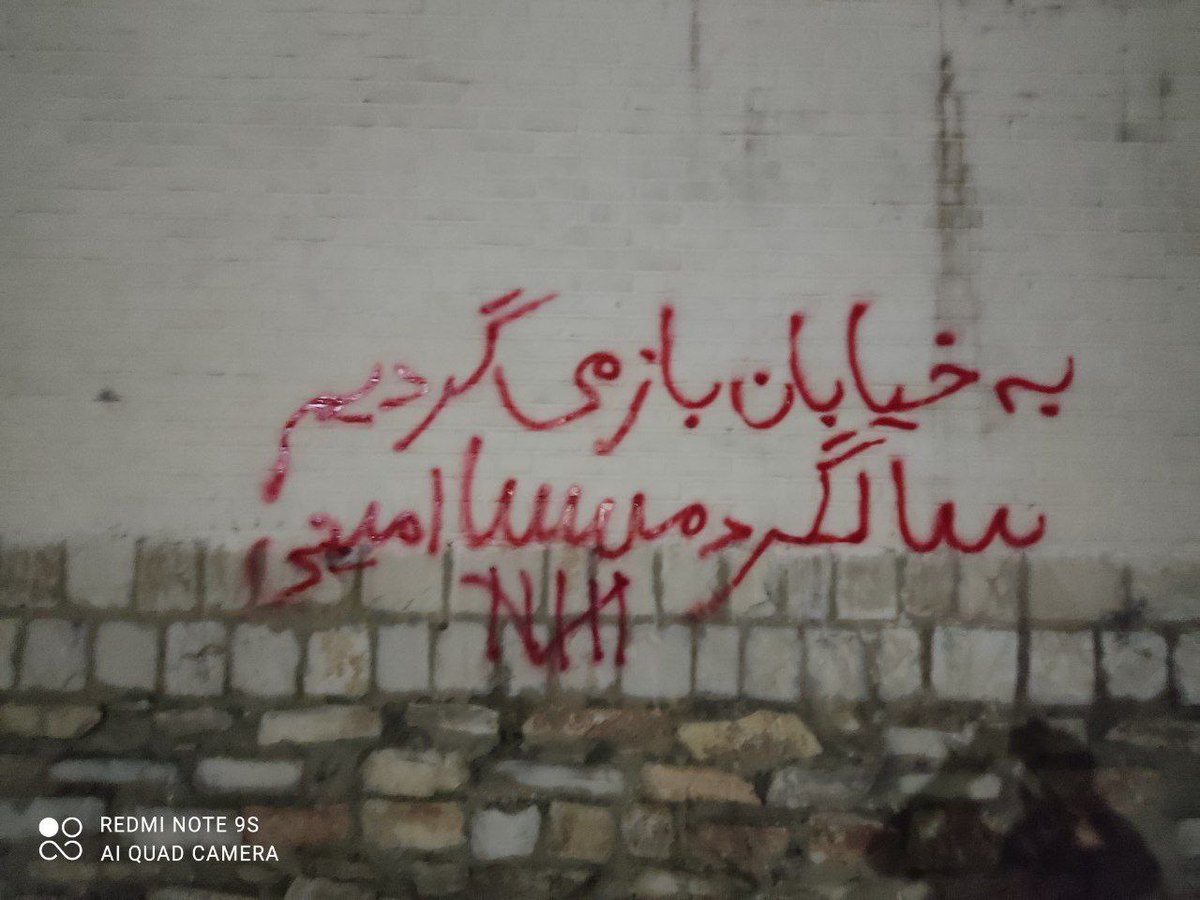 به خیابان باز می گردیم
سالگرد مهسا امینی
NH
REDMI NOTE 9S
AI QUAD CAMERA